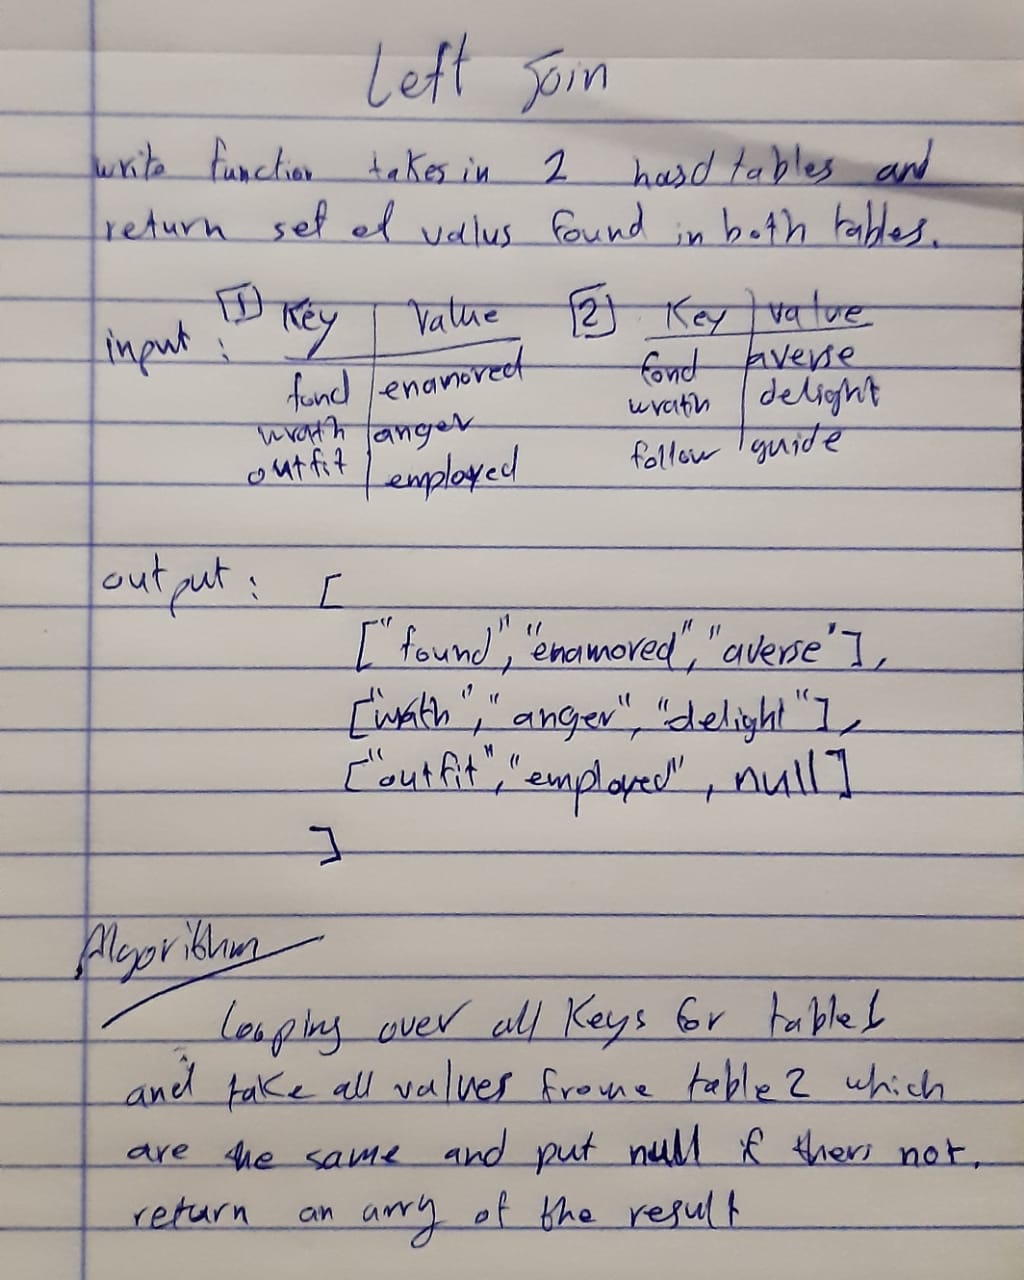 Left Join
write function takes in 2 hasd tables and
return set of valus found in both tables.
input : [1] Key | Value [2] Key | value
fond | enamored fond | averse
wrath | anger wrath | delight
outfit | employed follow | guide
output : [
["found", "enamored", "averse'],
["wrath", "anger", "delight"],
["outfit", "employed", null]
]
Algorithm
looping over all Keys for table1
and take all values frome table2 which
are the same and put null if thers not.
return an arry of the result